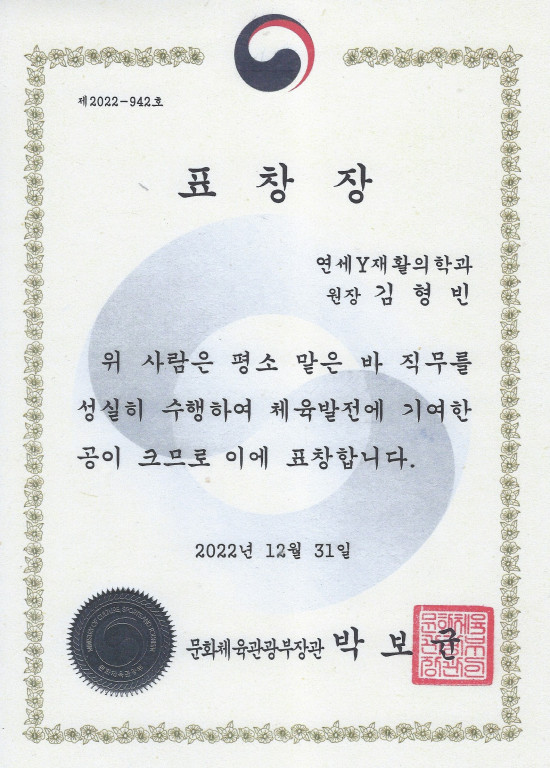 제2022-942호
표 창 장
연세Y재활의학과
원장 김 형 빈
위 사람은 평소 맡은 바 직무를
성실히 수행하여 체육발전에 기여한
공이 크므로 이에 표창합니다.
2022년 12월 31일
문화체육관광부장관 박 보 균